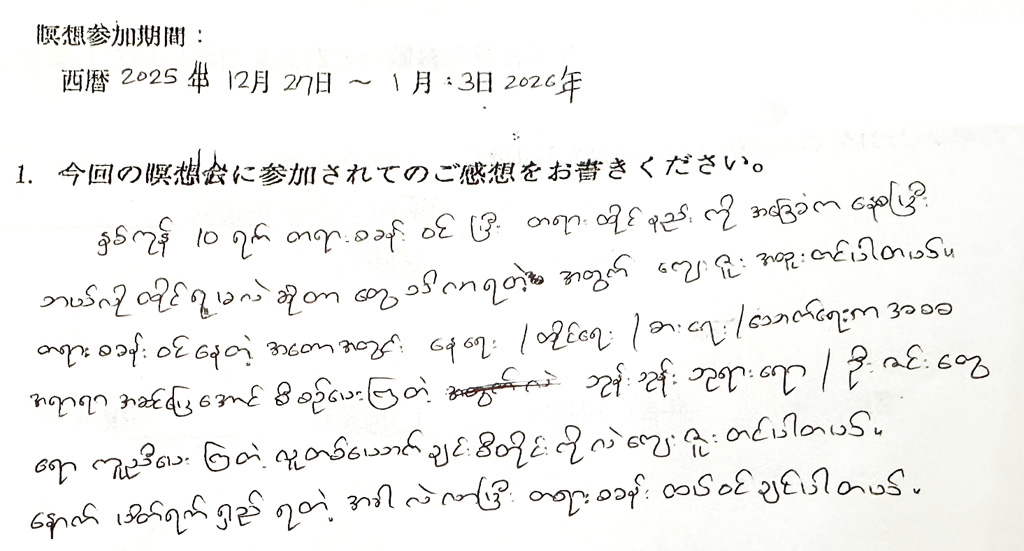 瞑想参加期間：
西暦 2025年 12月 27日 ～ 1月 3日 2026年
1. 今回の瞑想会に参加されてのご感想をお書きください。
နှစ်ကုန် 10 ရက် တရားစခန်း ဝင်ပြီး တရားထိုင်နည်း ကို အခြေခံက နေစပြီး
ဘယ်လို ထိုင်ရမလဲ ဆိုတာ တွေ သိလာရတဲ့ အတွက် ကျေးဇူး အထူးတင်ပါတယ်။
တရားစခန်းဝင်နေတဲ့ အတောအတွင်း နေရေး / ထိုင်ရေး / စားရေး / သောက်ရေးက အစစ
အရာရာ အဆင်ပြေအောင် စီစဉ်ပေးကြတဲ့ ဘုန်းဘုန်း ဘုရားရော / ဦးဇင်းတွေ
ရော ကူညီပေးကြတဲ့ လူတစ်ယောက်ချင်းစီတိုင်းကိုလဲ ကျေးဇူးတင်ပါတယ်။
နောက် ပိတ်ရက်ရှည် ရတဲ့ အခါလဲ လာပြီး တရားစခန်း ထပ်ဝင်ချင်ပါတယ်။